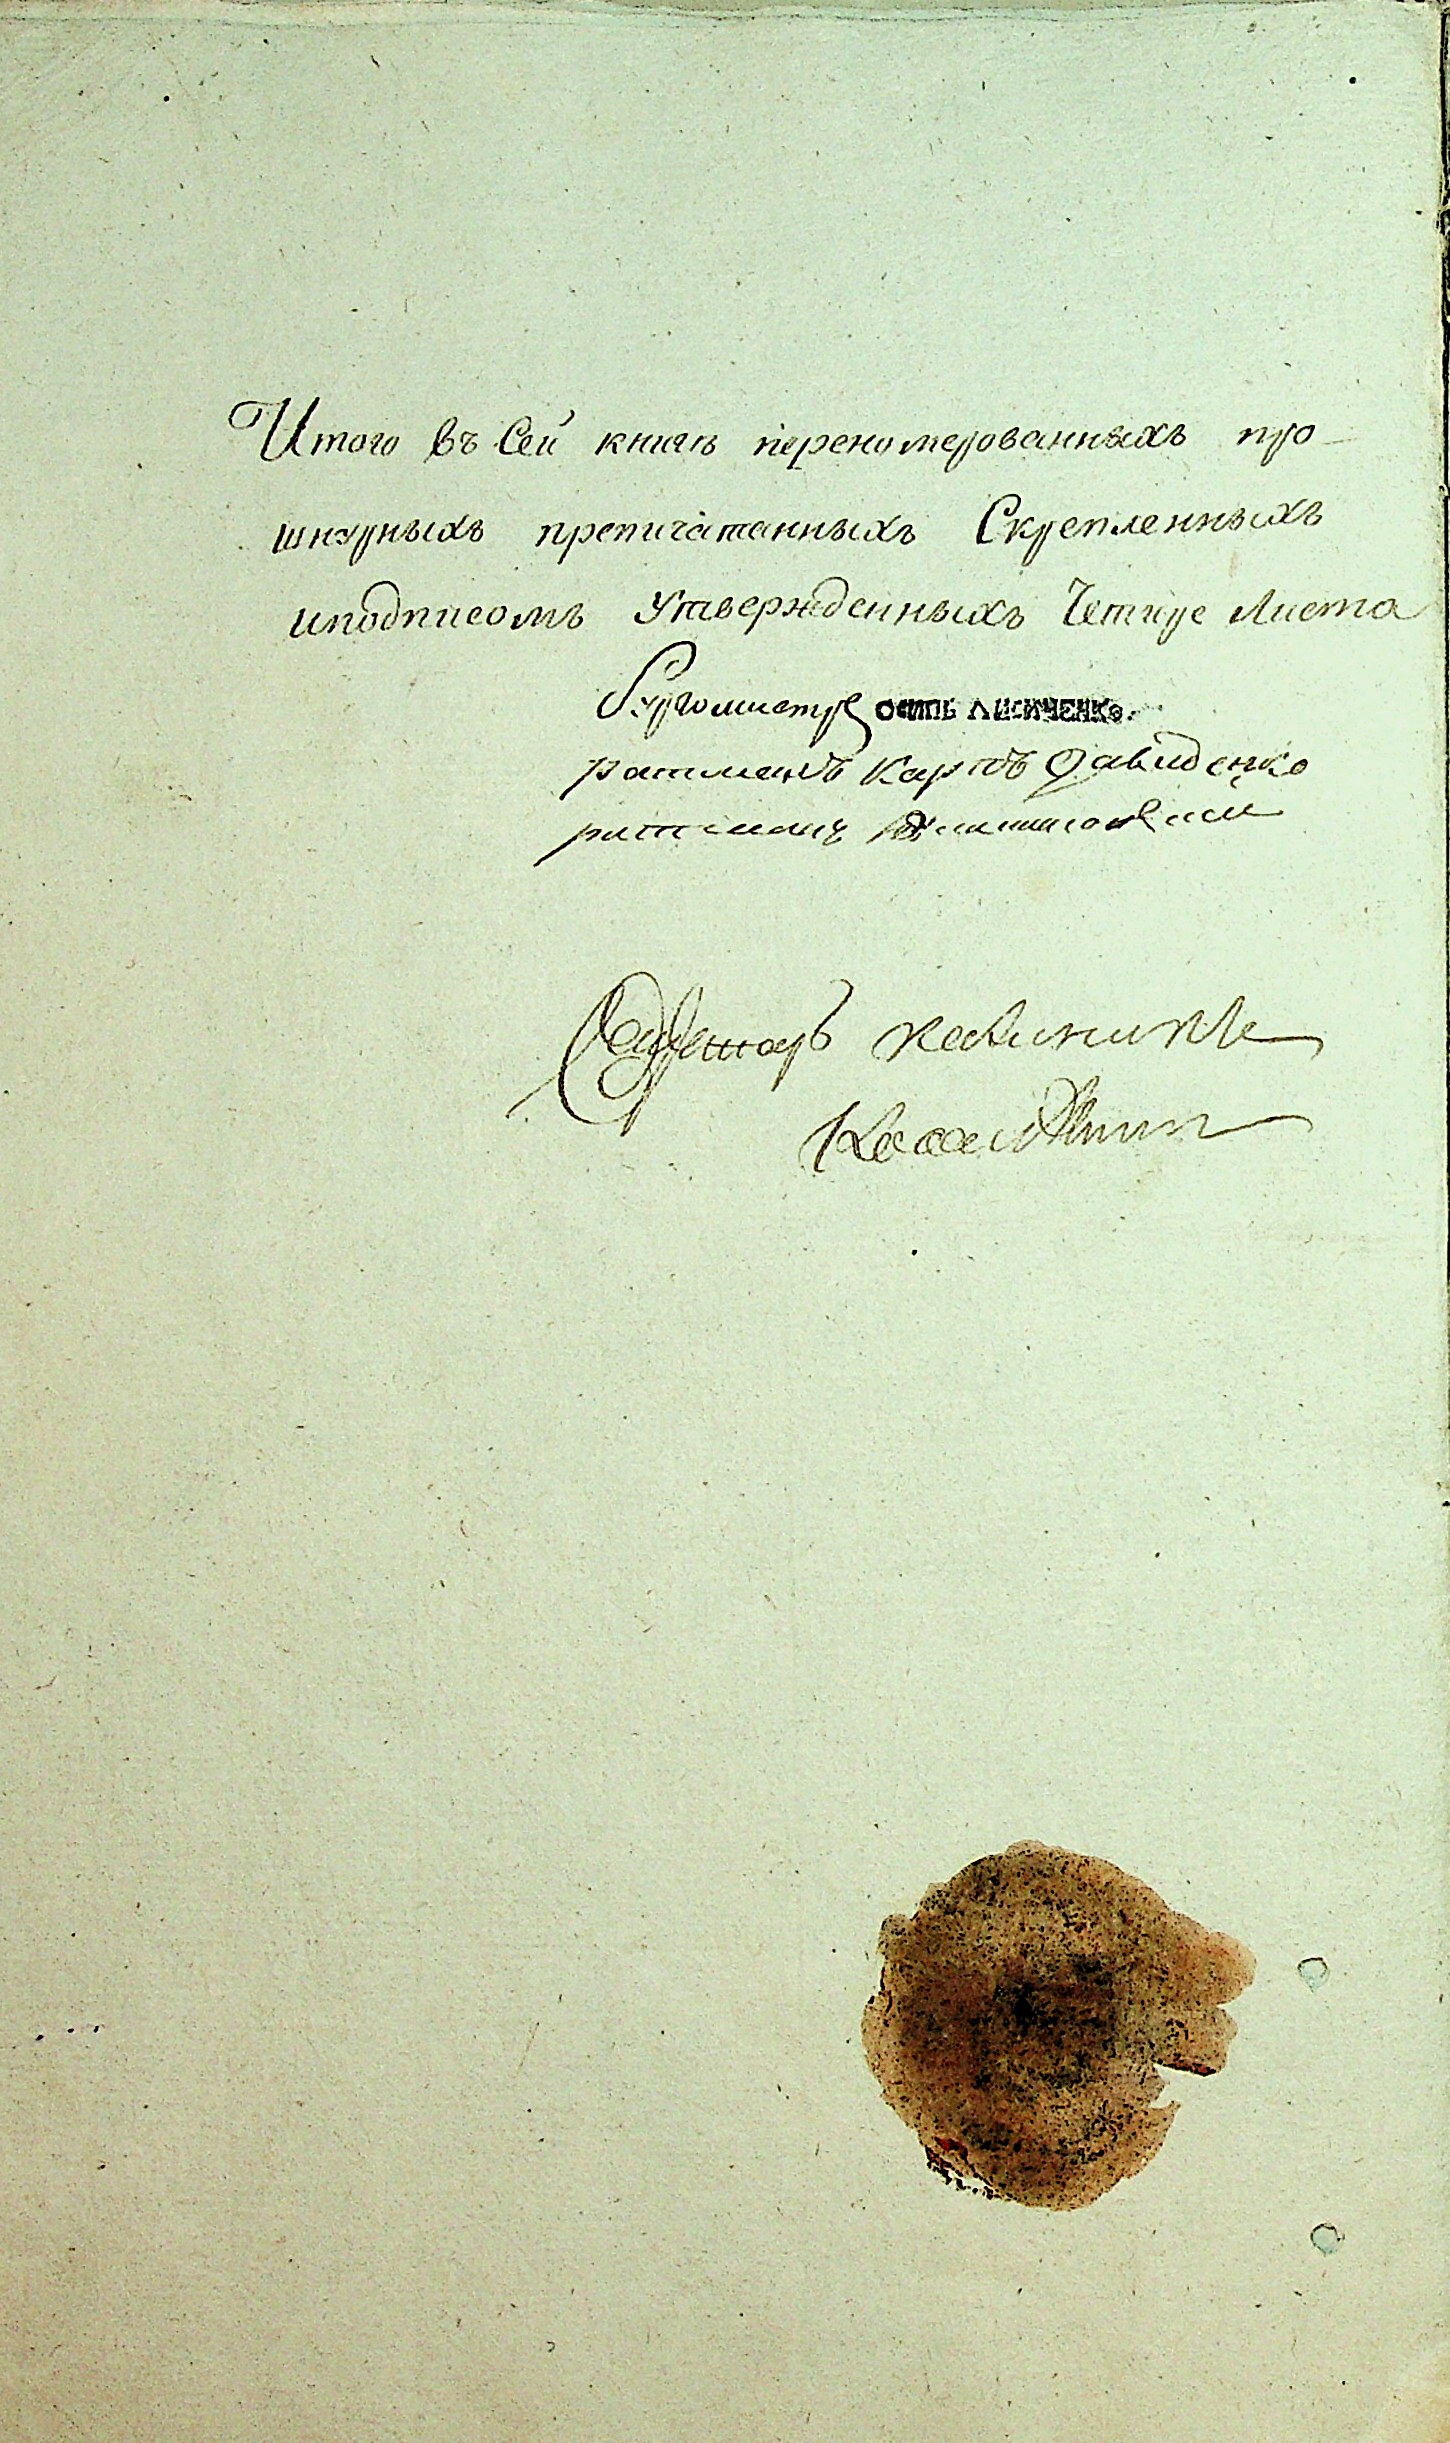 Итого въ Сей книгѣ переномерованныхъ про
шнурныхъ препичатанныхъ Скрепленныхъ
иподписомъ утвержденныхъ Четире листа
Бургомистръ ОСИПЬ ЛИСИЧЕНКО.
ратманъ Карпъ Давиденко
ратманъ
Секретарь